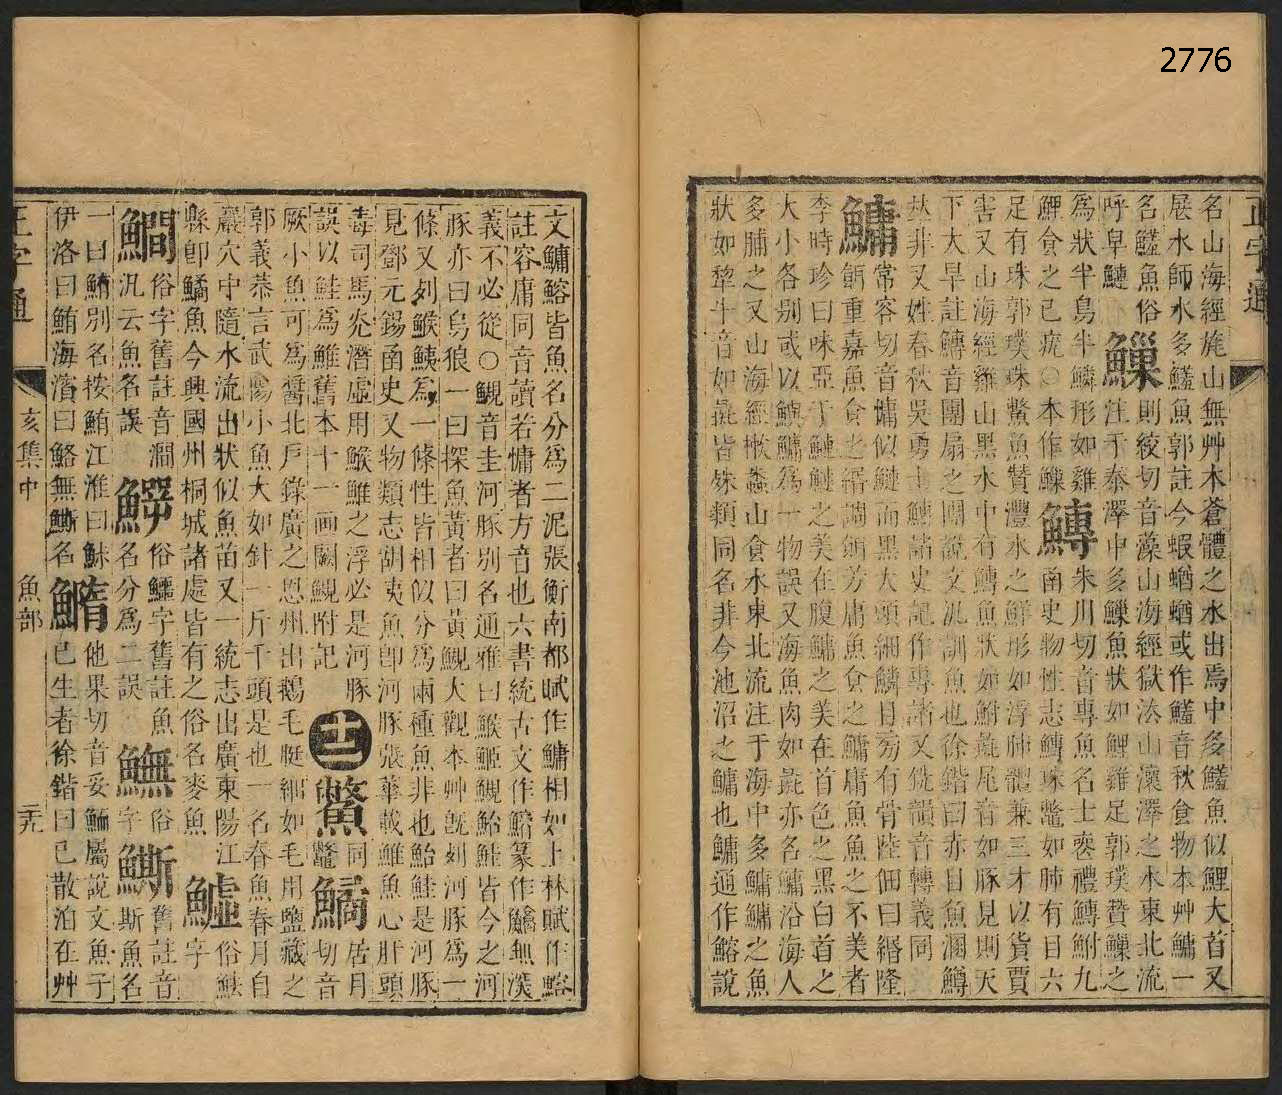 2776
正字通
名山海經旄山無艸木蒼體之水出焉中多鱃魚似鯉大首又
展水師水多鱃魚郭註今蝦蝤蝤或作鱃音秋食物本艸鱅一
名鱃魚俗
呼皁鰱 鱳 則絞切音藻山海經獄法山瀤澤之水東北流
注于泰澤中多鱳魚狀如鯉雞足郭璞贊鱳之
為狀半鳥半鱗形如雞
鯉食之已疣○本作鱢 鱄 朱川切音專魚名士喪禮鱄鮒九
南史物性志鱄珠鼈如肺有目六
足有珠郭璞珠鱉魚贊澧水之鮮形如浮肺體兼三才以貨賈
害又山海經雞山黑水中有鱄魚狀如鮒彘尾音如豚見則天
下大旱註鱄音團扇之團說文汎訓魚也徐鍇曰赤目魚溷鱒
𠀤非又姓春秋吳勇士鱄諸史記作專諸又銑韻音轉義同
鱅 常容切音慵似鰱而黑大頭細鱗目旁有骨陸佃曰縉隆
餌重嘉魚食之縉調餌芳庸魚食之鱅庸魚魚之不美者
李時珍曰味亞于鰱鰱之美在腹鱅之美在首色之黑白首之
大小各別或以鰱鱅為一物誤又海魚肉如彘亦名鱅沿海人
多腩之又山海經樕𧑤山食水東北流注于海中多鱅鱅之魚
狀如犂牛音如彘皆殊類同名非今池沼之鱅也鱅通作鰫說
文鱅鰫皆魚名分為二泥張衡南都賦作鱅相如上林賦作鰫
註容庸同音讀若慵者方音也六書統古文作鰫篆作鱅無濮
義不必從○鯢音圭河豚別名通雅曰鯸鮔鯢鮐鮭皆今之河
豚亦曰烏狼一曰探魚黃者曰黃鯢大觀本艸旣刻河豚為一
條又刻鯸鮧為一條性皆相似分為兩種魚非也鮐鮭是河豚
見鄧元錫函史又物類志胡夷魚卽河豚張華載鯸魚心肝頭
毒司馬炎潛虛用鯸鯸之浮必是河豚
誤以鮭為鯸舊本十一畫闕鯢附記 十二 鱉 同鼈 鱊 居月切音
厥小魚可為醬北戶錄廣之恩州出鵝毛脡細如毛用鹽藏之
郭義恭言武陽小魚大如針一斤千頭是也一名春魚春月自
巖穴中隨水流出狀似魚苗又一統志出廣東陽江
縣卽鱊魚今興國州桐城諸處皆有之俗名麥魚 鱋 俗魼字
鱂 俗字舊註音澗
汎云魚名誤 鰐 俗鱷字舊註魚
名分為二誤 鱆 俗字 鐁 舊註音斯魚名
一曰鮪別名按鮪江淮曰鮇
伊洛曰鮪海濱曰鮥無鐁名 鰖 他果切音妥鱦屬說文魚子
已生者徐鍇曰已散泊在艸
正字通
亥集中 魚部
二九